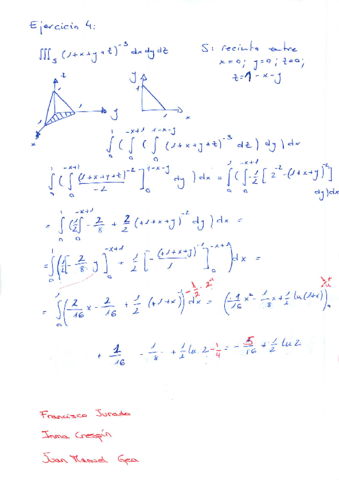 Ejercicio 4:
∭_S (1+x+y+z)^{-3} dx dy dz   S: recinto entre
x=0; y=0; z=0;
z=1-x-y
z 1 y 1 x   y 1 1 x
∫_0^1 ( ∫_0^{-x+1} ( ∫_0^{1-x-y} (1+x+y+z)^{-3} dz ) dy ) dx
∫_0^1 ( ∫_0^{-x+1} [ (1+x+y+z)^{-2} / -2 ]_0^{1-x-y} dy ) dx = ∫_0^1 ( ∫_0^{-x+1} -1/2 [ 2^{-2} - (1+x+y)^{-2} ] dy ) dx
= ∫_0^1 ( ∫_0^{-x+1} - 2/8 + 2/2 (1+x+y)^{-2} dy ) dx =
= ∫_0^1 ( [ - 2/8 y ]_0^{-x+1} + 1/2 [ - (1+x+y)^{-1} / 1 ]_0^{-x+1} ) dx =
= ∫_0^1 ( 2/16 x - 2/16 + 1/2 (1+x)^{-1} - 1/2 · 2^{-1} ) dx = ( 1/16 x² - 1/8 x + 1/2 ln(1+x) )_0^1
+ 1/16 - 1/8 + 1/2 ln 2 - 1/4 = - 5/16 + 1/2 ln 2
Francisco Jurado
Inma Crespín
Juan Manuel Gea